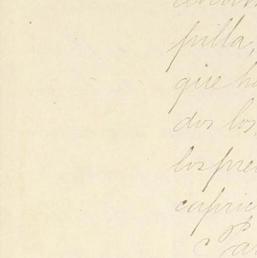 pilla,
que h
dos los
los pre
capric